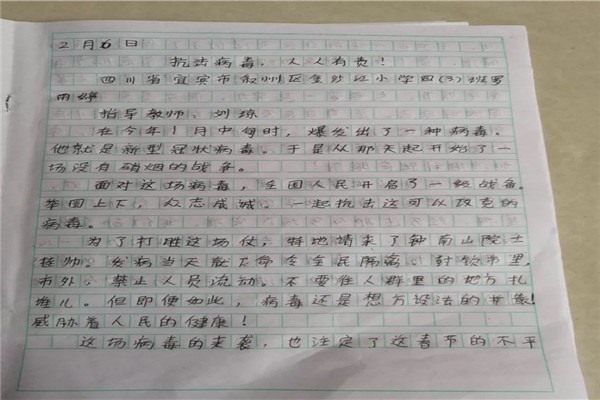 2月6日
抗击病毒，人人有责！
四川省宜宾市叙州区金沙江小学四(3)班罗
雨婷
指导教师：刘琼
在今年1月中旬时，爆发出了一种病毒。
他就是新型冠状病毒。于是从那天起开始了一
场没有硝烟的战备。
面对这场病毒，全国人民开启了一级战备。
举国上下，众志成城，一起抗击这可以攻克的
病毒。
为了打胜这场仗，特地请来了钟南山院士
挂帅。发病当天就下停令全民隔离。封锁市里
市外，禁止人员流动。不要往人群里的地方扎
堆儿。但即便如此，病毒还是想方设法的
威胁着人民的健康！
这场病毒的来袭，也注定了这春节的不平